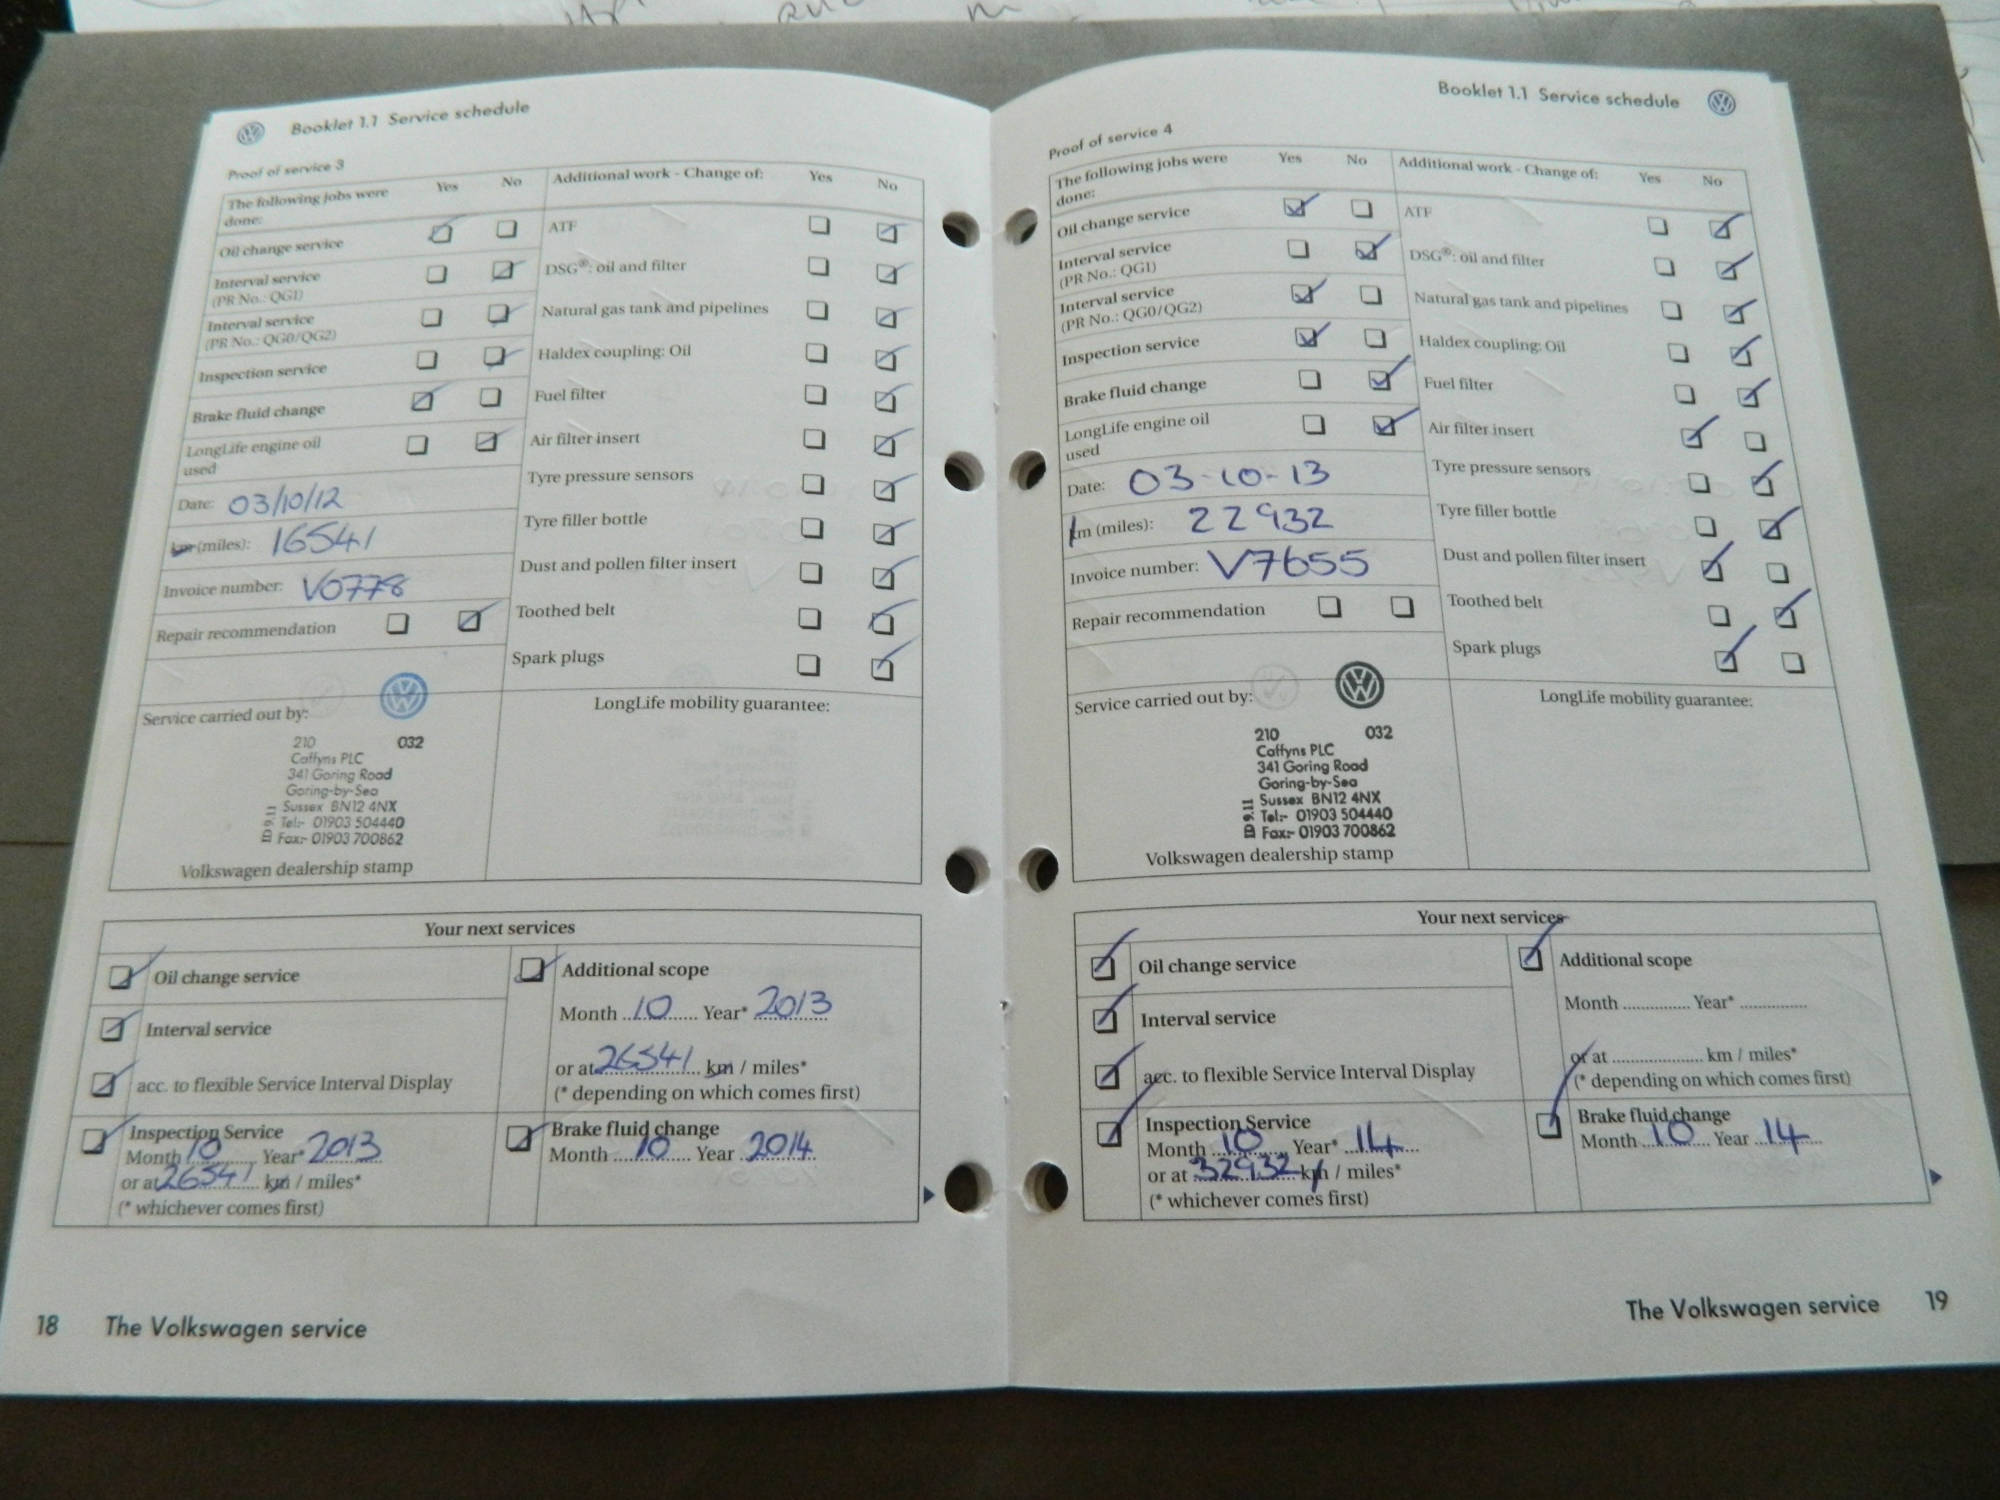 Booklet 1.1 Service schedule
Proof of service 3
The following jobs were done: Yes No Additional work - Change of: Yes No
Oil change service
ATF
Interval service
(PR No.: QG1)
DSG®: oil and filter
Interval service
(PR No.: QG0/QG2)
Natural gas tank and pipelines
Inspection service
Haldex coupling: Oil
Brake fluid change
Fuel filter
LongLife engine oil
used
Air filter insert
Date: 03/10/12
Tyre pressure sensors
km (miles): 16541
Tyre filler bottle
Invoice number: V0778
Dust and pollen filter insert
Repair recommendation
Toothed belt
Spark plugs
Service carried out by:
210 032
Caffyns PLC
341 Goring Road
Goring-by-Sea
Sussex BN12 4NX
Tel:- 01903 504440
Fax:- 01903 700862
ED 9.11
Volkswagen dealership stamp
LongLife mobility guarantee:
Your next services
Oil change service
Interval service
acc. to flexible Service Interval Display
Additional scope
Month 10 Year* 2013
or at 26541 km / miles*
(* depending on which comes first)
Inspection Service
Month 10 Year* 2013
or at 26541 km / miles*
(* whichever comes first)
Brake fluid change
Month 10 Year 2014
18 The Volkswagen service
Booklet 1.1 Service schedule
Proof of service 4
The following jobs were done: Yes No Additional work - Change of: Yes No
Oil change service
ATF
Interval service
(PR No.: QG1)
DSG®: oil and filter
Interval service
(PR No.: QG0/QG2)
Natural gas tank and pipelines
Inspection service
Haldex coupling: Oil
Brake fluid change
Fuel filter
LongLife engine oil
used
Air filter insert
Date: 03-10-13
Tyre pressure sensors
km (miles): 22932
Tyre filler bottle
Invoice number: V7655
Dust and pollen filter insert
Repair recommendation
Toothed belt
Spark plugs
Service carried out by:
210 032
Caffyns PLC
341 Goring Road
Goring-by-Sea
Sussex BN12 4NX
Tel:- 01903 504440
Fax:- 01903 700862
ED 9.11
Volkswagen dealership stamp
LongLife mobility guarantee:
Your next services
Oil change service
Interval service
acc. to flexible Service Interval Display
Additional scope
Month .............. Year* ..............
or at .................... km / miles*
(* depending on which comes first)
Inspection Service
Month 10 Year* 14
or at 32932 km / miles*
(* whichever comes first)
Brake fluid change
Month 10 Year 14
The Volkswagen service 19